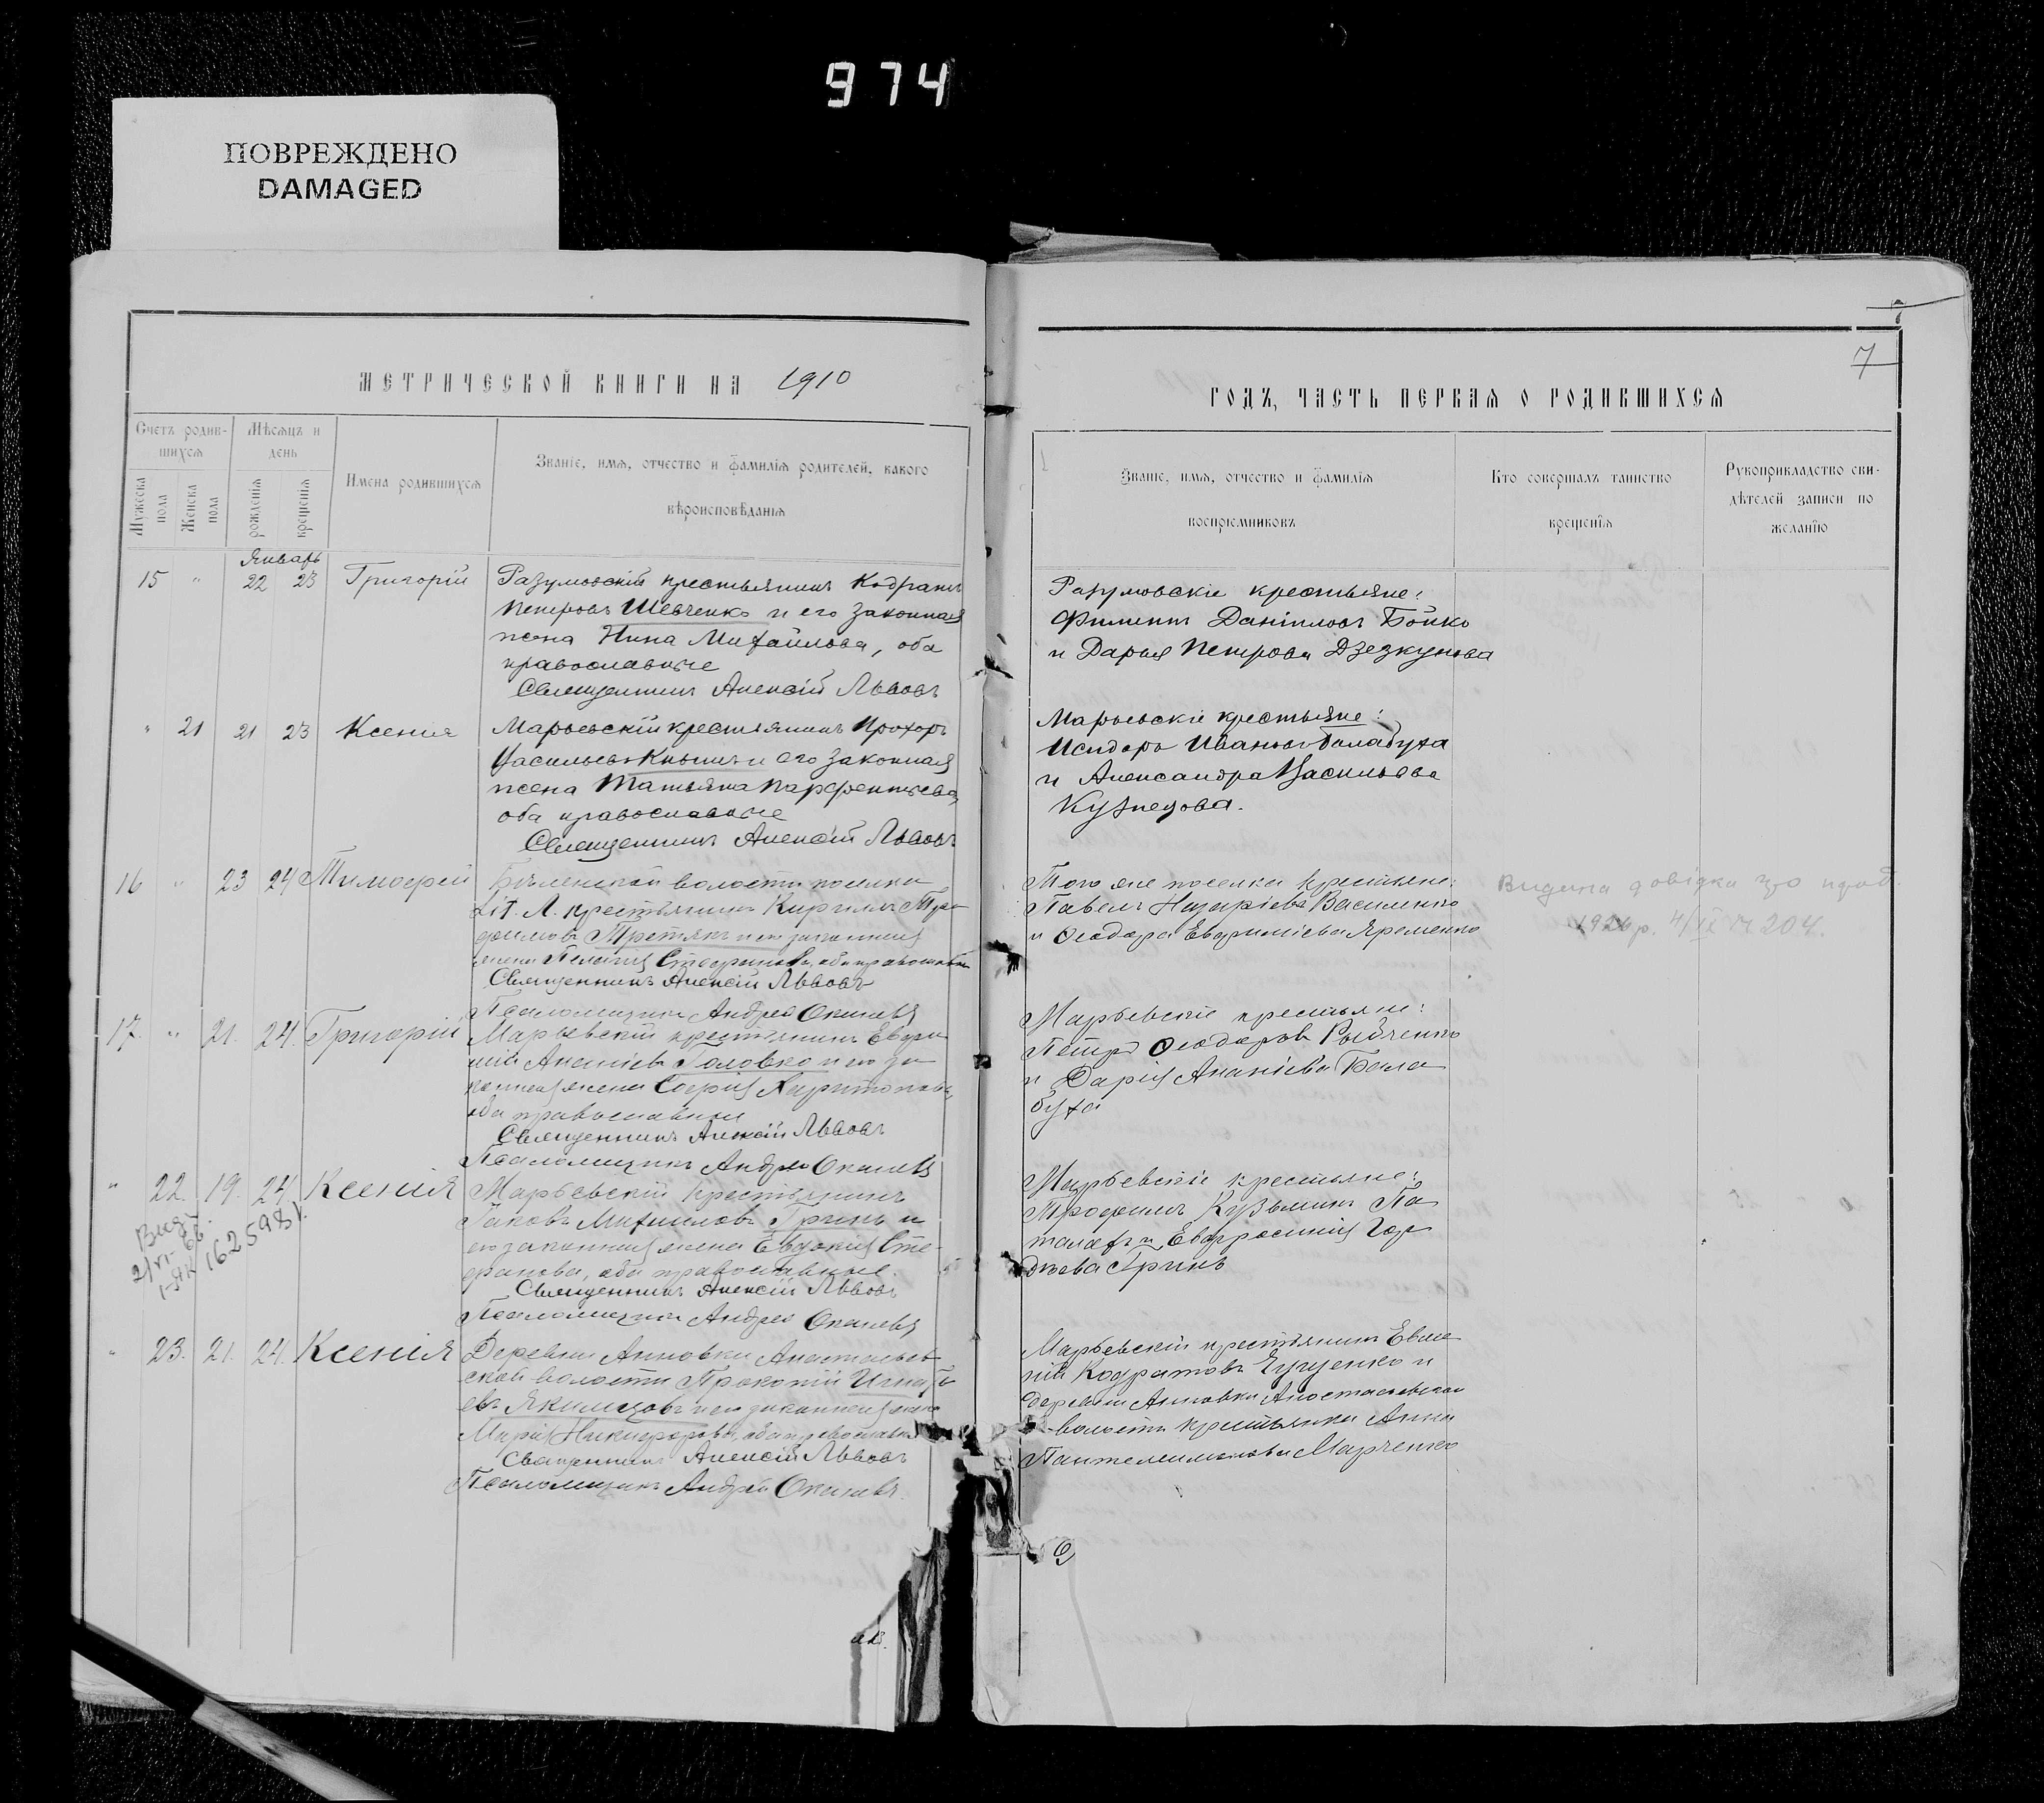 974
ПОВРЕЖДЕНО
DAMAGED
7
МЕТРИЧЕСКОЙ КНИГИ НА 1910
ГОДЪ, ЧАСТЬ ПЕРВАЯ О РОДИВШИХСЯ
Счетъ родив-
шихся
Мужеска пола
Женска пола
Мѣсяцъ и
день
рожденія
крещенія
Имена родившихся
Званіе, имя, отчество и фамилія родителей, какого
вѣроисповѣданія
Званіе, имя, отчество и фамилія
воспріемниковъ
Кто совершалъ таинство
крещенія
Рукоприкладство сви-
дѣтелей записи по
желанію
Январь
15 " 22 23 Григорій
Разумовскій крестьянинъ Кодратъ
Петровъ Шевченко и его законная
жена Нина Михайлова, оба
православные
Священникъ Алексій Львовъ
Разумовскіе крестьяне:
Филиппъ Даніиловъ Бойко
и Дарья Петрова Дзезкунова
" 21 21 23 Ксенія
Марьевскій крестьянинъ Прохоръ
Васильевъ Кнышъ и его законная
жена Татьяна Парфентьева,
оба православные
Священникъ Алексій Львовъ
Марьевскіе крестьяне:
Исидоръ Ивановъ Балабуха
и Александра Васильева
Кузнецова.
16 " 23 24 Тимофей
Бѣленской волости поселка
Лит. Л. крестьянинъ Кириллъ Тро
фимовъ Третякъ и его законная
жена Пелагія Стефанова, оба православные
Священникъ Алексій Львовъ
Псаломщикъ Андрей
Того же поселка крестьяне:
Павелъ Назаріевъ Василенко
и Ѳеодора Евфиміева Яременко
Видана довідка про
192 р. 4/IX № 204.
17. " 21. 24. Григорій
Марьевскій крестьянинъ Евфи
мій Ананіевъ Головко и его за
конная жена Софія Харитонова,
оба православные
Священникъ Алексій Львовъ
Псаломщикъ Андрей
Марьевскіе крестьяне:
Петръ Ѳеодоровъ Рыбченко
и Дарія Ананіева Бала
буха
" 22. 19. 24. Ксенія
1625981
Марьевскій крестьянинъ
Іаковъ Михаиловъ Гринь и
его законная жена Евдокія Сте-
фанова, оба православные.
Священникъ Алексій Львовъ
Псаломщикъ Андрей
Марьевскіе крестьяне:
Трофимъ Кузьминъ Па
талахъ и Евфросинія Гор
дѣева Гринь
" 23. 21. 24. Ксенія
Деревни Анновки Анастасьев
ской волости Прокопій Игнать
евъ Якимцовъ и его законная жена
Марія Никифорова, оба православные
Священникъ Алексій Львовъ
Псаломщикъ Андрей
Марьевскій крестьянинъ Евме
ній Кодратовъ и
деревни Анновки Анастасьевской
волости крестьянка Анна
Пантелеимонова Марченко